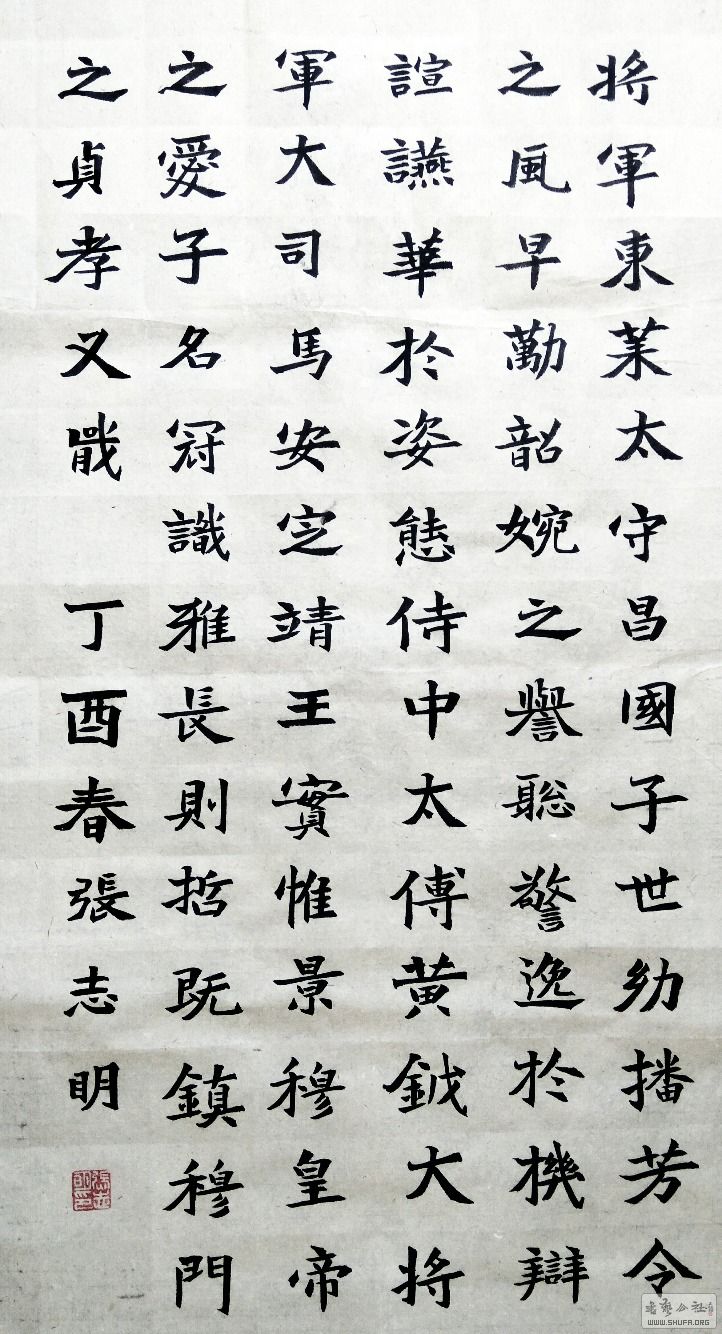 將軍東萊太守昌國子世幼播芳令
之風早勱韶婉之譽聡警逸於機辯
諠讌華於姿態侍中太傅黃鉞大將
軍大司馬安定靖王實惟景穆皇帝
之愛子名冠識雅長則哲既鎮穆門
之貞孝又戢
丁酉春張志明
WWW.SHUFA.ORG